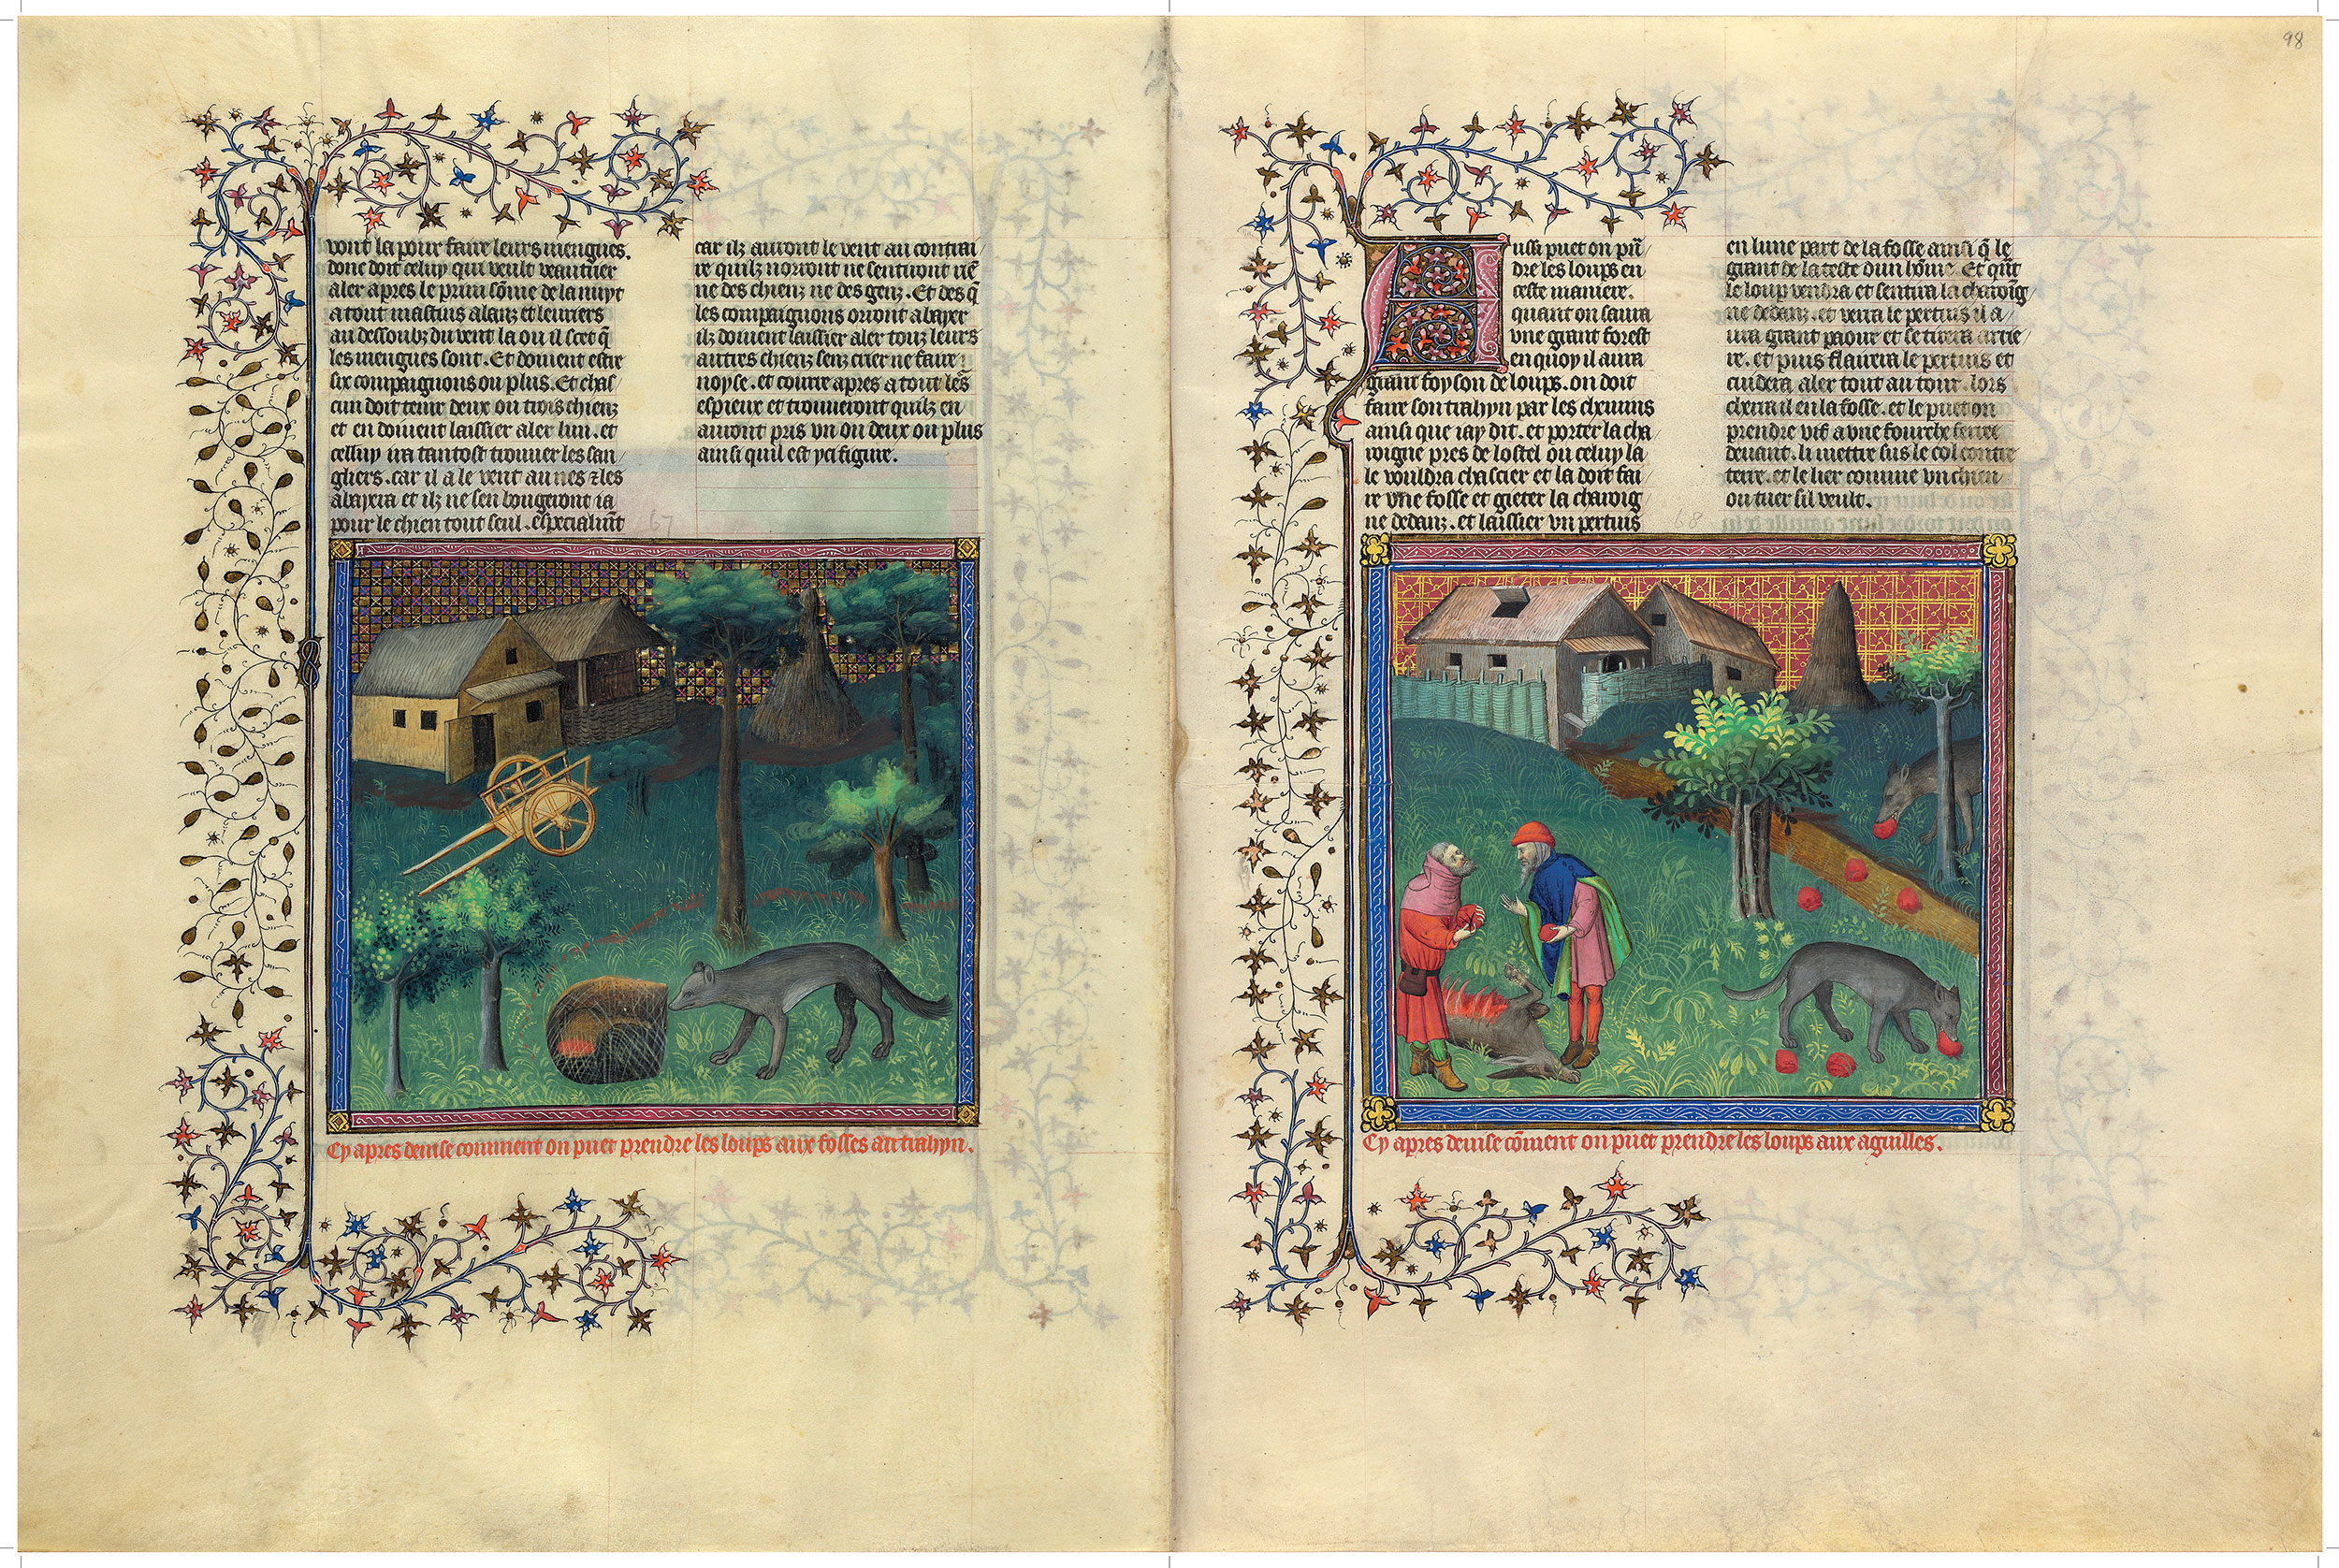 vont la pour faire leurs mengues.
donc doit celuy qui veult veautrer
aler apres le prim sõme de la nuyt
a tout mastins alanz et leuriers
au dessoubz du vent la ou il scet q̃
les mengues sont. Et doiuent estre
six compaignons ou plus. Et chas/
cun doit tenir deux ou trois chienz
et en doiuent laissier aler lun. et
celluy ira tantost trouuer les san/
gliers. car il a le vent au nes ⁊ les
abayera et ilz ne sen bougeront ia
pour le chien tout seul. especialmt̃
67
car ilz auront le vent au contrai/
re quilz norront ne sentiront riẽ
ne des chienz ne des genz. Et des q̃
les compaignons orront abayer
ilz doiuent laissier aler touz leurs
autres chienz senz crier ne faire
noyse. et courre apres a tout les
espieux et trouueront quilz en
auront pris vn ou deux ou plus
ainsi quil est yci figure.
Cy apres deuise comment on puet prendre les loups aux fosses au trahyn.
98
Aussi puet on pñ/
dre les loups en
ceste maniere.
quant on saura
vne grant forest
en quoy il aura
grant foyson de loups. on doit
faire son trahyn par les chemins
ainsi que iay dit. et porter la cha/
roigne pres de lostel ou celuy la
le vouldra chascier et la doit fai/
re vne fosse et gieter la charoig/
ne dedanz. et laissier vn pertuis
68
en lune part de la fosse ainsi q̃ le
grant de la teste dun hõme. Et qñt
le loup vendra et sentira la charoig/
ne dedanz. et verra le pertuis il a/
ura grant paour et se tirera arrie/
re. et puis flairera le pertuis et
cuidera aler tout au tour. lors
cherra il en la fosse. et le puet on
prendre vif a vne fourche ferree
deuant. li mettre sus le col contre
terre. et le lier comme vn chien
ou tuer sil veult.
Cy apres deuise cõment on puet prendre les loups aux aguilles.